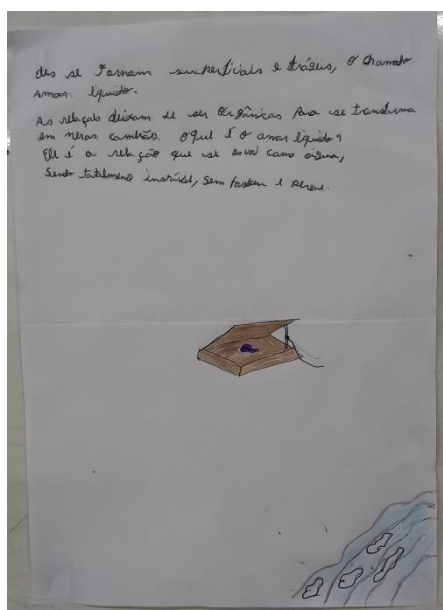 des se Tornam superficiais e frágeis, o chamado
amor líquido.
As relação deixam de ser orgânicas Para se transforma
em meras conexão. o que É o amor líquido?
Ele é a relação que se esvai como água,
Sendo totalmente instável, sem e